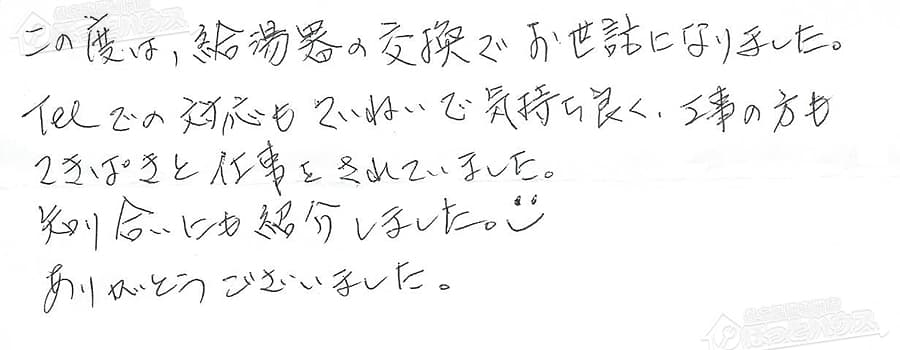 この度は、給湯器の交換でお世話になりました。
Telでの対応もていねいで気持ち良く、工事の方も
てきぱきと仕事をされていました。
知り合いにも紹介しました。
ありがとうございました。